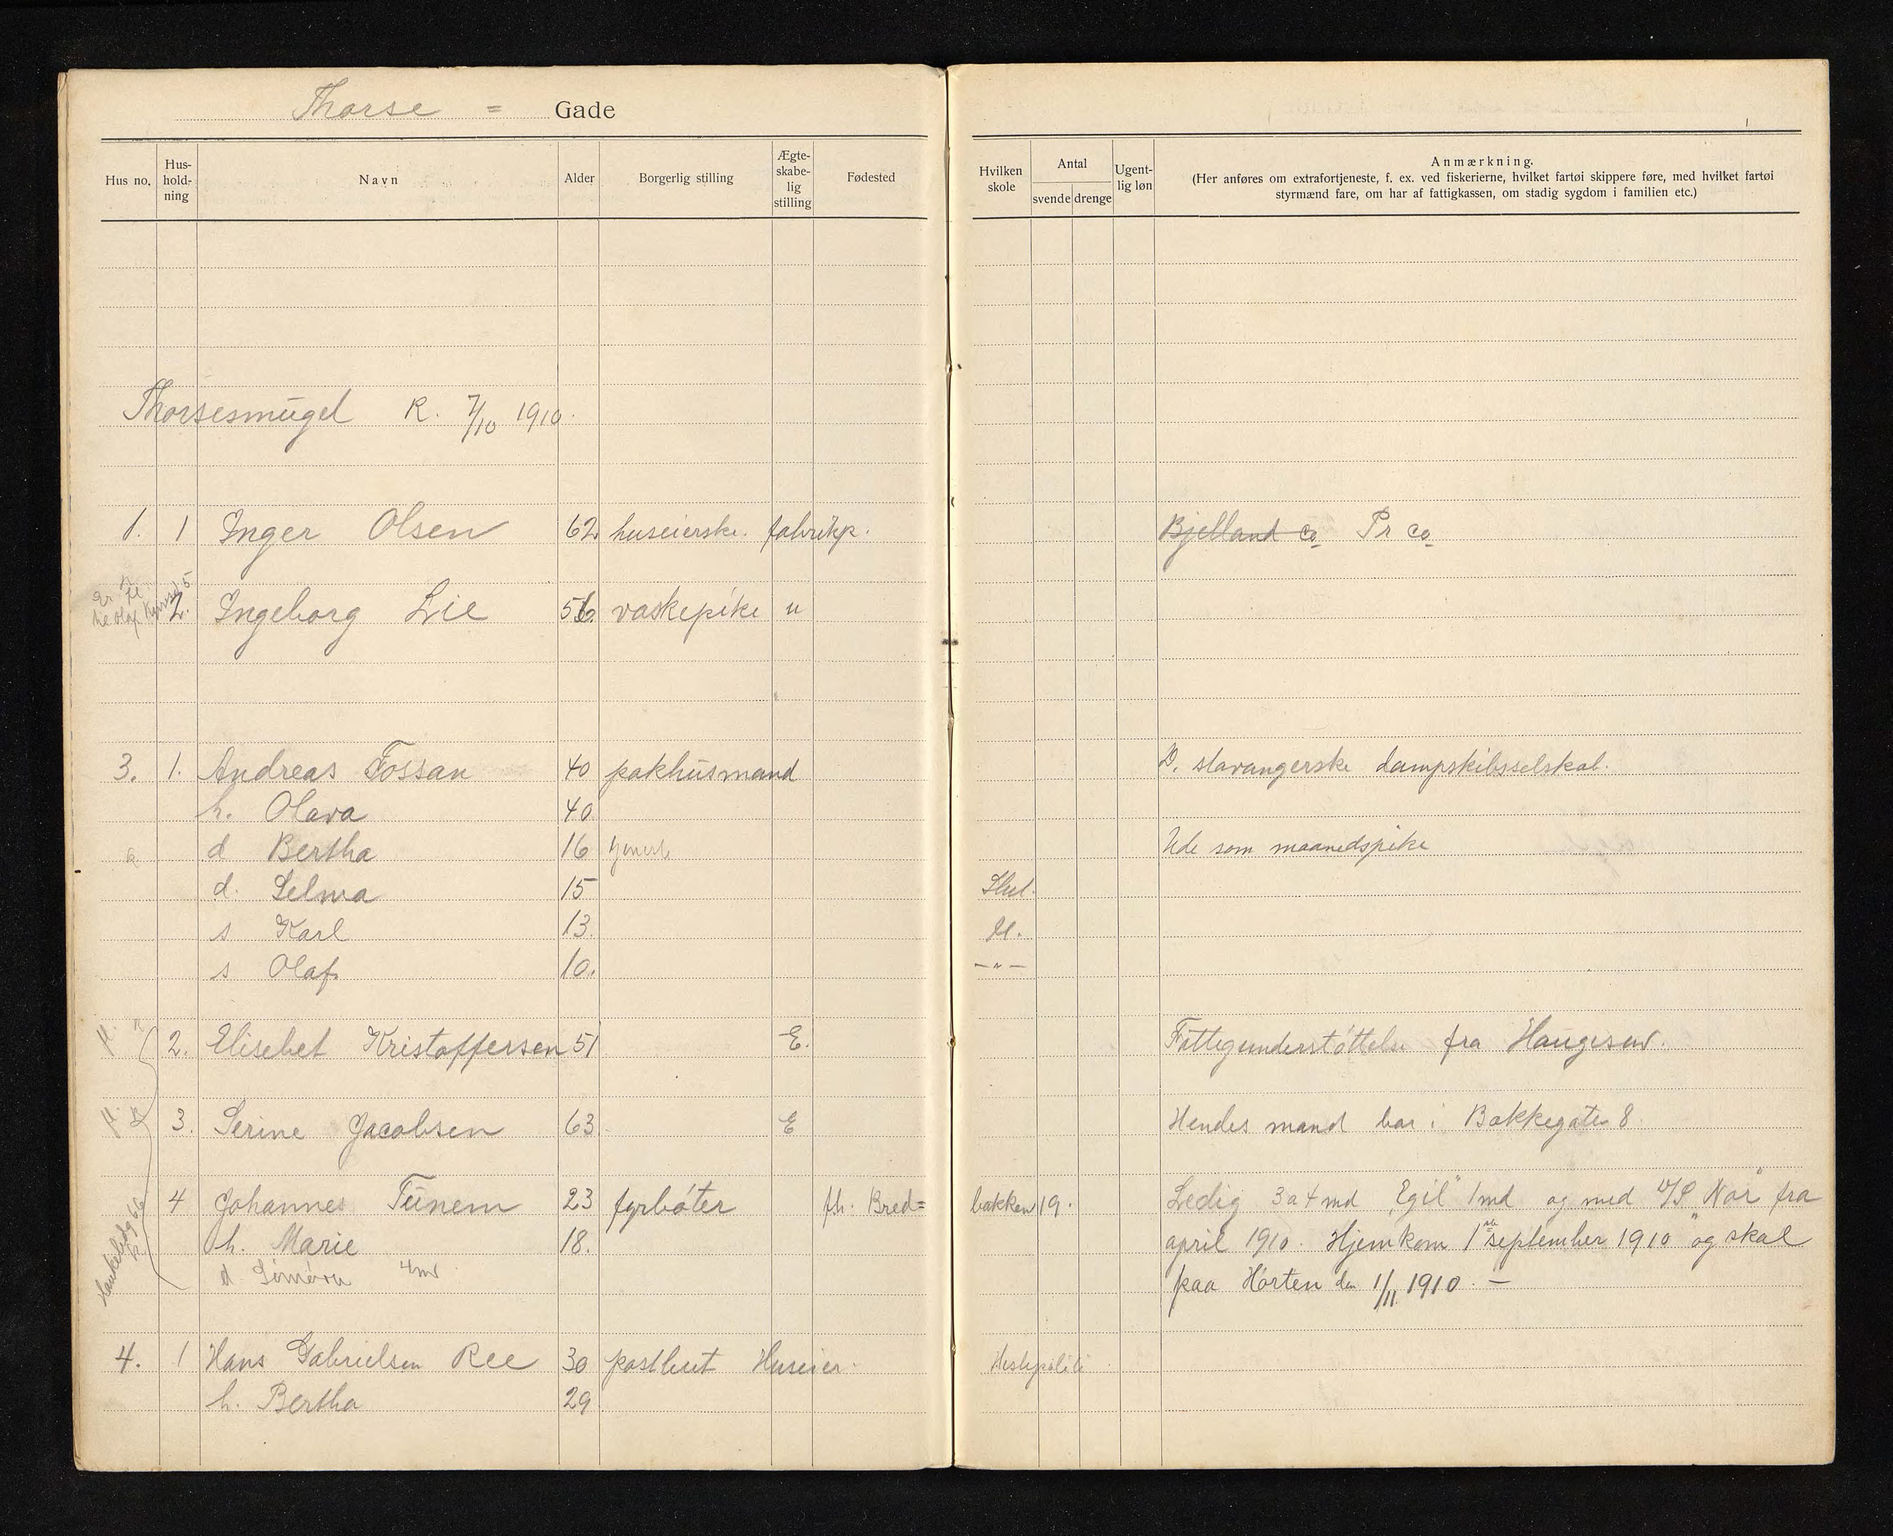 Thorse = Gade
Hus no. Hus-hold-ning Navn Alder Borgerlig stilling Ægte-skabe-lig stilling Fødested Hvilken skole Antal svende drenge Ugent-lig løn Anmærkning.
(Her anføres om extrafortjeneste, f. ex. ved fiskerierne, hvilket fartøi skippere føre, med hvilket fartøi
styrmænd fare, om har af fattigkassen, om stadig sygdom i familien etc.)
Thorsesmuget R. 7/10 1910.
1. 1 Inger Olsen 62 huseierske. fabrikp. Bjelland co Pr co
2. Ingeborg Lie 56 vaskepike u
3. 1. Andreas Fossan 40 pakhusmand D. stavangerske dampskibsselskab.
h. Olava 40
d Bertha 16 Ude som maanedspike
d. Selma 15
s Karl 13.
s Olaf 10. -"-
2. Elisebet Kristoffersen 51 E. Fattigunderstøttelse fra Haugesund.
3. Serine Jacobsen 63 E Hendes mand bor i Bakkegaten 8.
4 Johannes Tunem 23 fyrbøter fh. Bred= bakken 19. Ledig 3 a 4 md "Egil" 1 md og med D/S "Nor" fra
h. Marie 18. april 1910. Hjemkom 1ste september 1910 og skal
d 4 md paa Horten den 1/11 1910. —
4. 1 Hans Gabrielsen Ree 30 postbud Huseier. Hestepoliti
h. Bertha 29